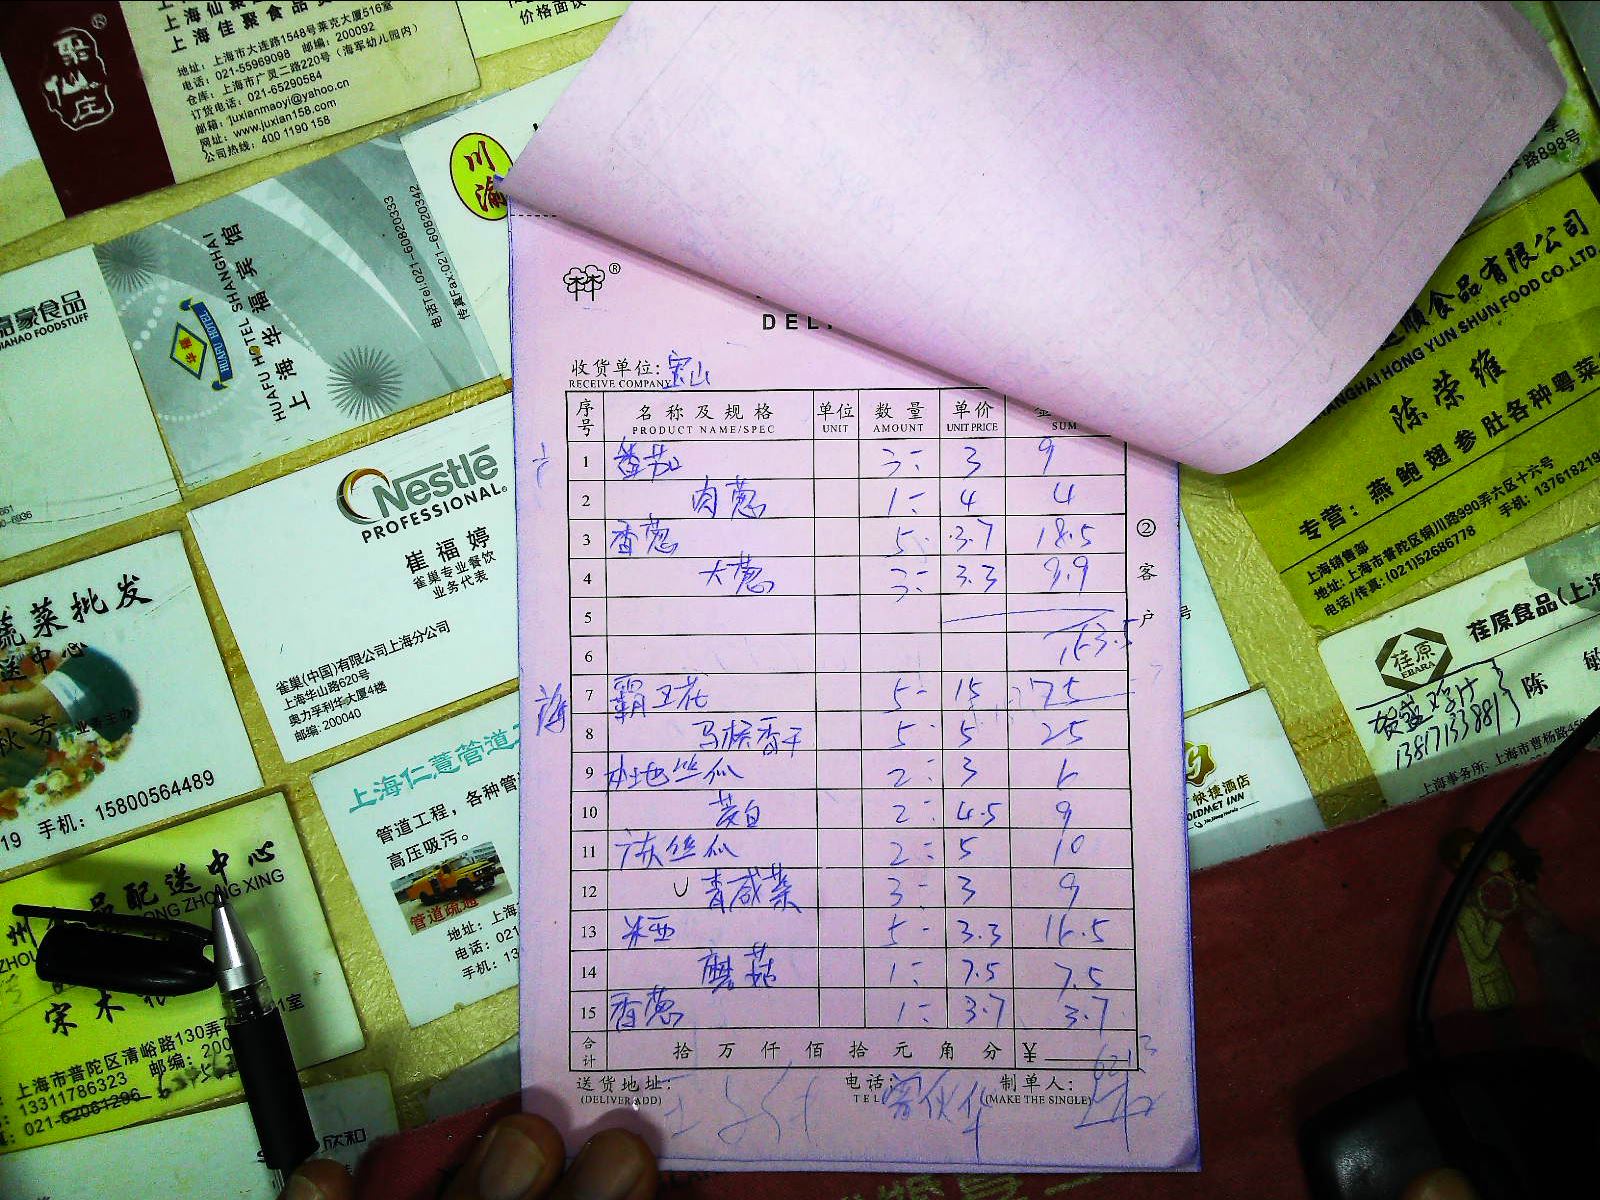 上海佳聚食品
地址：上海市大连路1548号莱克大厦516室
电话：021-55969098 邮编：200092
仓库：上海市广灵二路220号（海军幼儿园内）
订货电话：021-65290584
邮箱：juxianmaoyi@yahoo.cn
网址：www.juxian158.com
公司热线：400 1190 158
聚仙庄
价格面议
川渝
HUAFU HOTEL
HUAFU HOTEL SHANGHAI
上海华福宾馆
电话Tel:021-60820333
传真Fax:021-60820342
家食品
JIAHAO FOODSTUFF
Nestlé
PROFESSIONAL
崔福婷
雀巢专业餐饮
业务代表
雀巢(中国)有限公司上海分公司
上海华山路620号
奥力孚利华大厦4楼
邮编:200040
蔬菜批发
送中心
秋芳 业务主办
19 手机：15800564489
上海仁薏管道工
管道工程，各种管
高压吸污。
管道疏通
地址：上海
电话：021
手机：13
品配送中心
ZHONG XING
宋木
上海市普陀区清峪路130弄
13311786323 邮编：200
021-62061296
DEL
收货单位：宝山
RECEIVE COMPANY
序号 名称及规格 单位 数量 单价
PRODUCT NAME/SPEC UNIT AMOUNT UNIT PRICE SUM
1 番茄 3 3 9
2 肉葱 1 4 4
3 香葱 5 3.7 18.5
4 大葱 3 3.3 9.9
5
6
7 霸王花 5 15 75
8 马桥香干 5 5 25
9 本地丝瓜 2 3 6
10 茭白 2 4.5 9
11 广东丝瓜 2 5 10
12 青咸菜 3 3 9
13 米西 5 3.3 16.5
14 蘑菇 1 7.5 7.5
15 香葱 1 3.7 3.7
合计 拾万仟佰拾元角分 ¥
送货地址： 电话： 制单人：
(DELIVER ADD) TEL (MAKE THE SINGLE)
②客户
产路898号
顺食品有限公司
SHANGHAI HONG YUN SHUN FOOD CO.,LTD.
陈荣维
专营：燕鲍翅参肚各种粤菜
上海销售部
地址：上海市普陀区铜川路990弄六区十六号
电话/传真：(021)52686778 手机：137618219
荏原
EBARA
荏原食品(上海
陈敏
13817133881
上海事务所：上海市曹杨路450
快捷酒店
GOLDMET INN